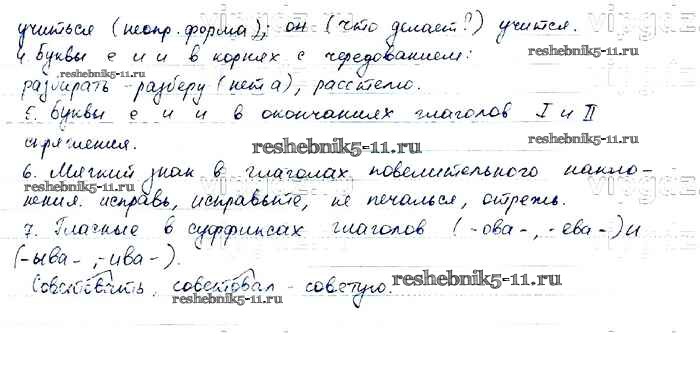 учиться (неопр. форма); он (что делает?) учится.
4 буквы е и и в корнях с чередованием:
reshebnik5-11.ru
разбирать - разберу (нет а), расстелю.
reshebnik5-11.ru
5. Буквы е и и в окончаниях глаголов I и II
спряжения.
reshebnik5-11.ru
6. Мягкий знак в глаголах повелительного накло-
нения. исправь, исправьте, не печалься, отрежь.
7. Гласные в суффиксах глаголов (-ова-, -ева-) и
reshebnik5-11.ru
reshebnik5-11.ru
(-ыва-, -ива-).
Советовать, советовал - советую.
reshebnik5-11.ru
reshebnik5-11.ru